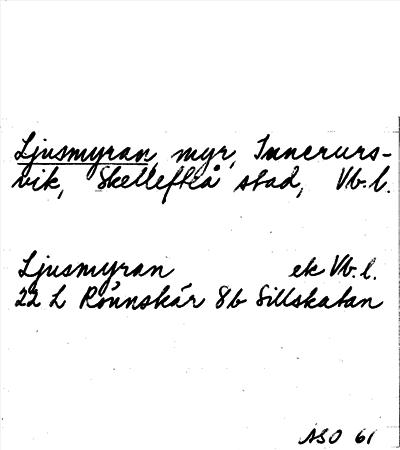 Ljusmyran, myr, Innerurs-
vik, Skellefteå stad, Vb.l.
Ljusmyran ek Vb.l.
22 L Rönnskär 8b Sillskatan
ASO 61